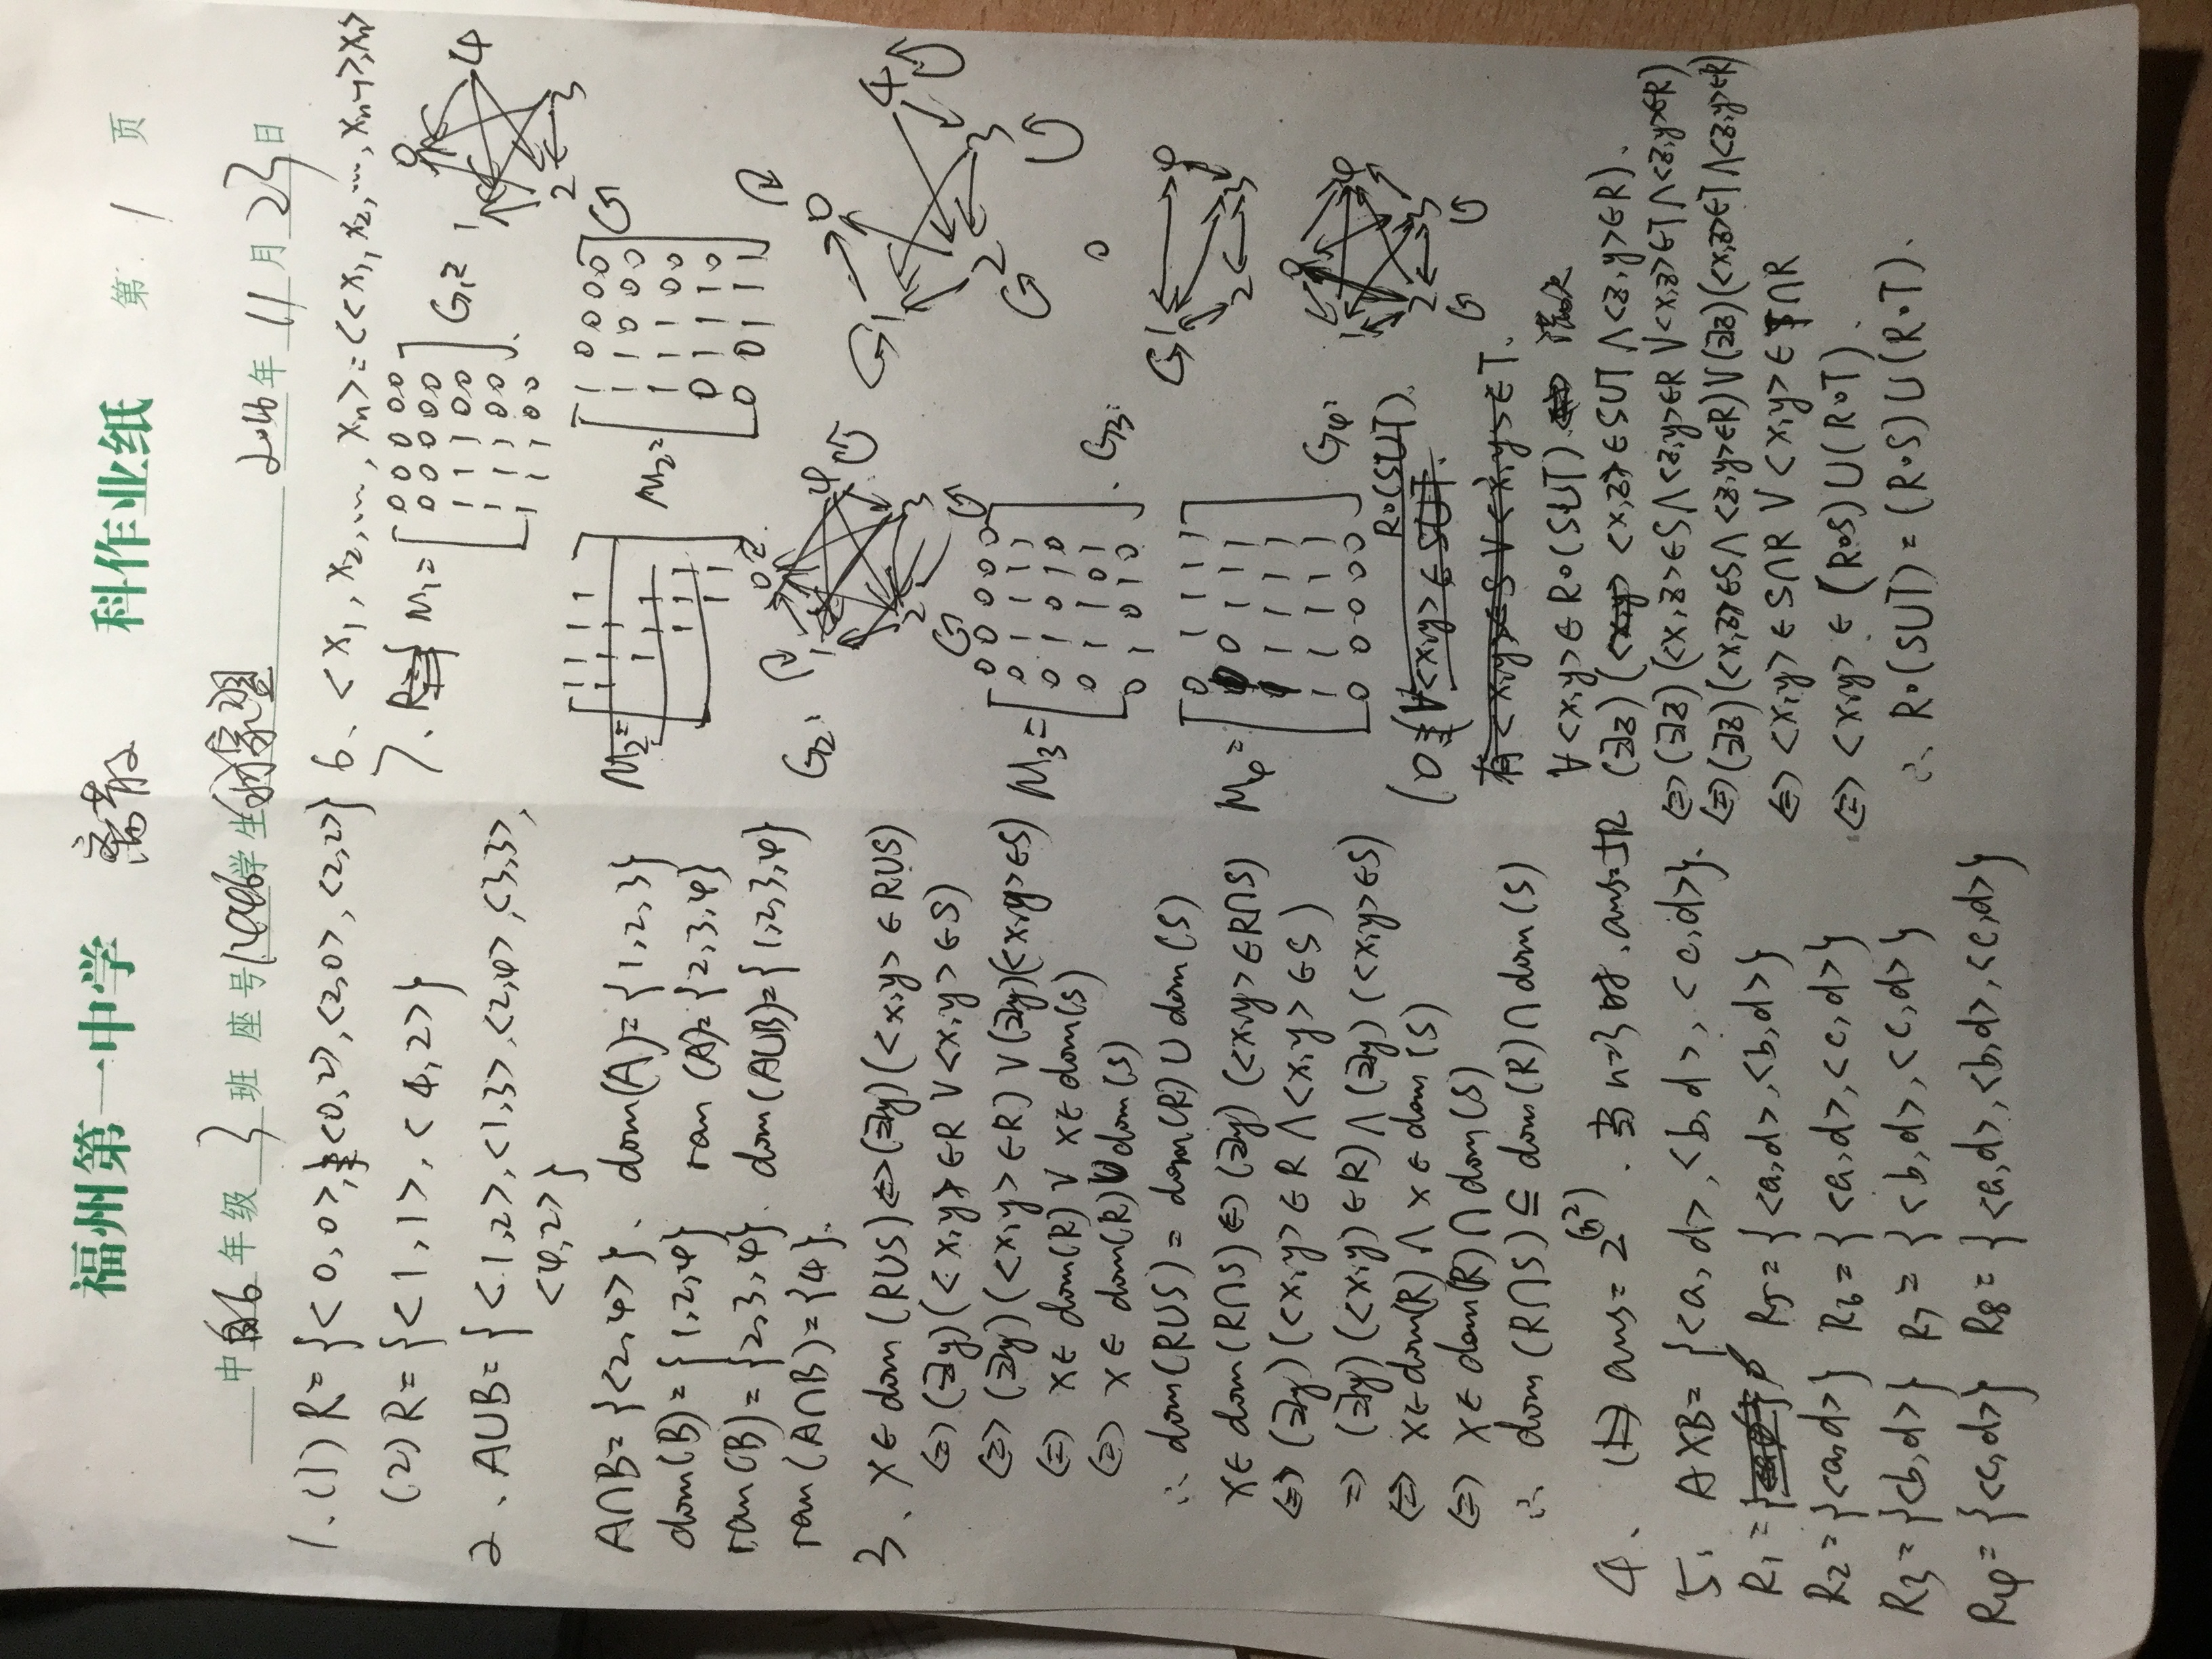 福州第一中学 离散 科作业纸 第 1 页
中 自6 年级 3 班 座号 学生 家翌 2016年 11 月 23 日
1、(1) R = {<0,0>, <0,2>, <2,0>, <2,2>}
(2) R = {<1,1>, <4,2>}
2、A∪B = {<1,2>, <1,3>, <2,4>, <3,3>,
<4,2>}
A∩B = {<2,4>}. dom(A) = {1,2,3}
dom(B) = {1,2,4} ran(A) = {2,3,4}
ran(B) = {2,3,4}. dom(A∪B) = {1,2,3,4}
ran(A∩B) = {4}.
3、x∈dom(R∪S) ⇔ (∃y)(<x,y>∈R∪S)
⇔ (∃y)(<x,y>∈R ∨ <x,y>∈S)
⇔ (∃y)(<x,y>∈R) ∨ (∃y)(<x,y>∈S)
⇔ x∈dom(R) ∨ x∈dom(S)
⇔ x∈dom(R)∪dom(S)
∴ dom(R∪S) = dom(R)∪dom(S)
x∈dom(R∩S) ⇔ (∃y)(<x,y>∈R∩S)
⇔ (∃y)(<x,y>∈R ∧ <x,y>∈S)
⇒ (∃y)(<x,y>∈R) ∧ (∃y)(<x,y>∈S)
⇔ x∈dom(R) ∧ x∈dom(S)
⇔ x∈dom(R)∩dom(S)
∴ dom(R∩S) ⊆ dom(R)∩dom(S)
4、ans = 2^(n²). 当n=3时, ans=512
5、A×B = {<a,d>, <b,d>, <c,d>}.
R1 = ∅ R5 = {<a,d>, <b,d>}
R2 = {<a,d>} R6 = {<a,d>, <c,d>}
R3 = {<b,d>} R7 = {<b,d>, <c,d>}
R4 = {<c,d>} R8 = {<a,d>, <b,d>, <c,d>}
6、<x1, x2, …, xn> = <<x1, x2, …, xn-1>, xn>
7、M1 = [
0 0 0 0 0
0 0 0 0 0
1 1 1 0 0
1 1 1 0 0
1 1 1 0 0
] G1:
0
1 4
2 3
M2 = [
1 1 1 1
1 1 1
1 1 1
1 1 1
1 1
]
M2 = [
1 0 0 0 0
1 1 0 0 0
1 1 1 0 0
0 1 1 1 0
0 0 1 1 1
]
G2:
0
1 4
2 3
0
1 4
2 3
M3 = [
0 0 0 0 0
0 1 1 1 1
0 1 0 1 0
0 1 1 0 1
0 1 0 1 0
]. G3:
0
1 4
2 3
M4 = [
0 1 1 1 1
1 0 1 1 1
1 1 1 1 1
1 1 1 1 1
0 0 0 0 0
] G4:
0
1 4
2 3
R∘(S∪T).
10 ∀<x,y>∈S∪T.
有<x,y>∈S ∨ <x,y>∈T.
∀<x,y>∈R∘(S∪T)
(∃z)(<x,z>∈S∪T ∧ <z,y>∈R).
⇔ (∃z)(<x,z>∈S ∧ <z,y>∈R ∨ <x,z>∈T ∧ <z,y>∈R)
⇔ (∃z)(<x,z>∈S ∧ <z,y>∈R) ∨ (∃z)(<x,z>∈T ∧ <z,y>∈R)
⇔ <x,y>∈S∩R ∨ <x,y>∈T∩R
⇔ <x,y>∈(R∘S)∪(R∘T).
∴ R∘(S∪T) = (R∘S)∪(R∘T).